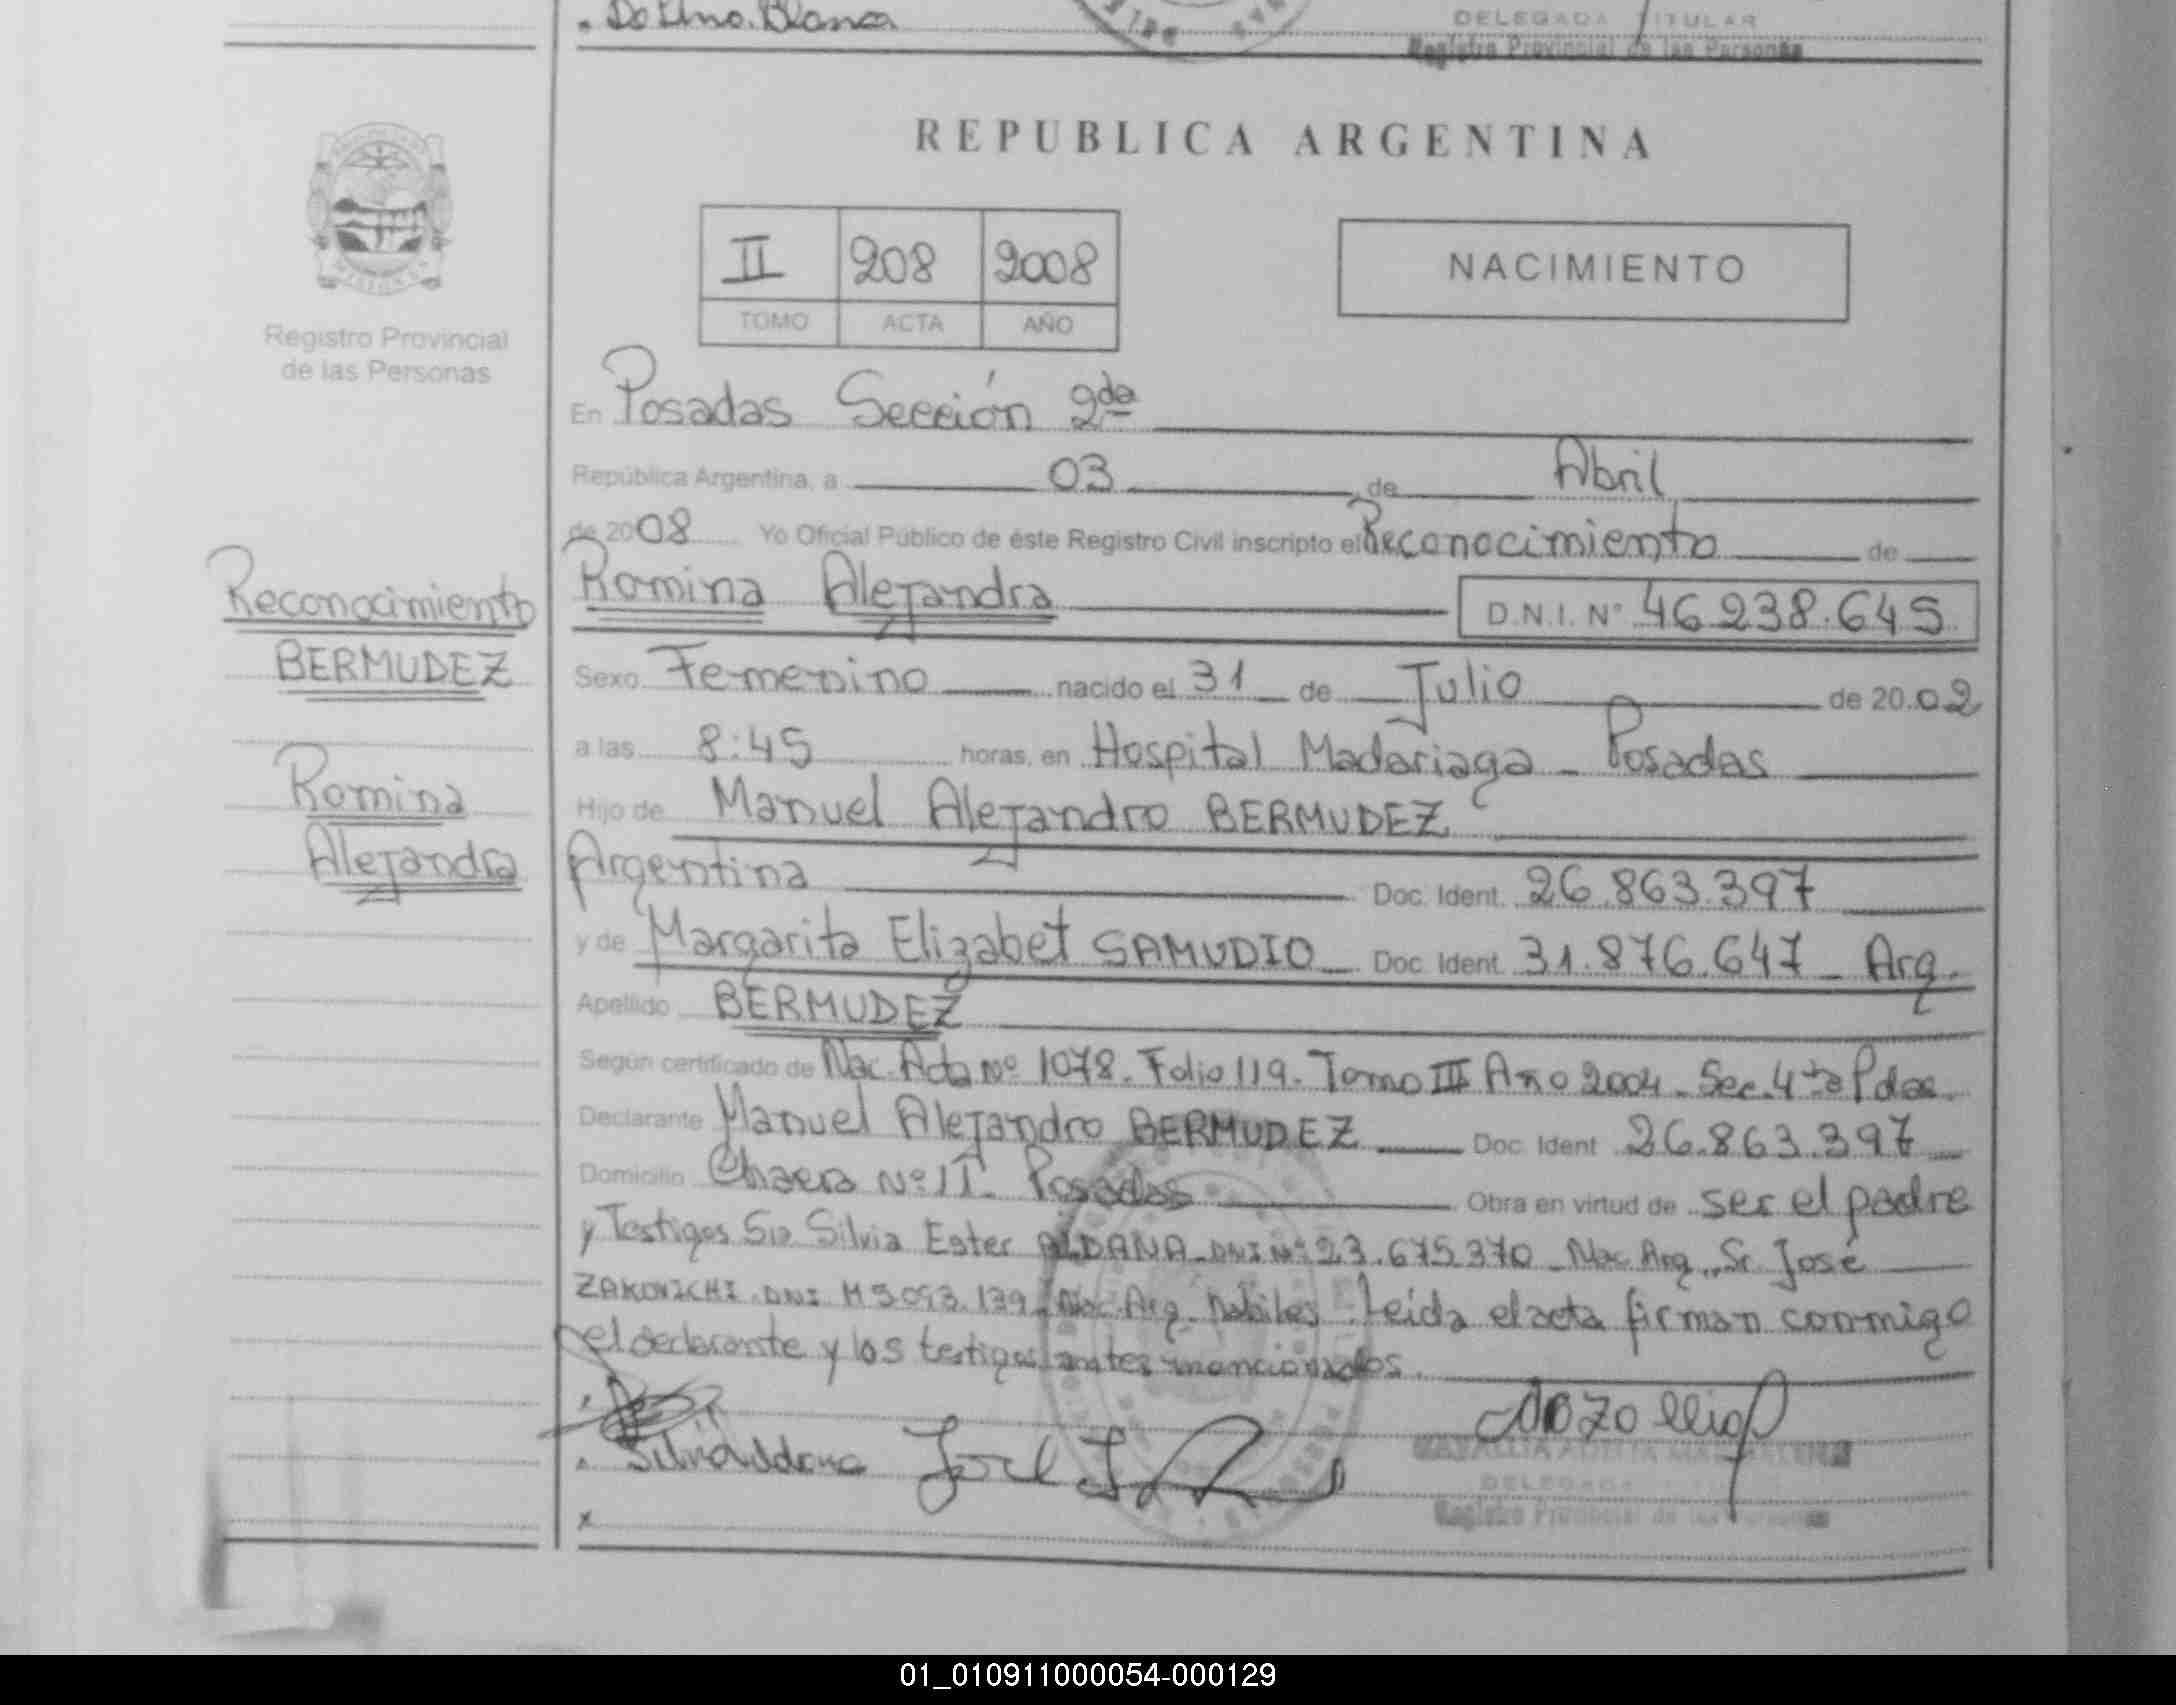 DELEGADA TITULAR
Registro Provincial de las Personas
REPUBLICA ARGENTINA
II 208 2008
TOMO ACTA AÑO
NACIMIENTO
Registro Provincial
de las Personas
En Posadas Sección 2da
República Argentina, a 03 de Abril
de 2008 Yo Oficial Público de éste Registro Civil inscripto el Reconocimiento de
Reconocimiento
BERMUDEZ
Romina
Alejandra
Romina Alejandra D.N.I. Nº 46.238.645
Sexo Femenino nacido el 31 de Julio de 20 02
a las 8:45 horas, en Hospital Madariaga - Posadas
Hijo de Manuel Alejandro BERMUDEZ
Argentina Doc. Ident. 26.863.397
y de Margarita Elizabet SAMUDIO - Doc. Ident. 31.876.647 - Arg.
Apellido BERMUDEZ
Según certificado de Nac. Acta Nº 1078. Folio 119. Tomo III Año 2004. Sec. 4ta Pdas.
Declarante Manuel Alejandro BERMUDEZ Doc. Ident 26.863.397
Domicilio Chacra Nº Posadas Obra en virtud de ser el padre
y Testigos Sra Silvia Ester ALDANA - DNI Nº 23.675.370 - Nac. Arg. Sr. José
DNI M 5093.139 - Nac. Arg. Leida el acta firman conmigo
el declarante y los testigos antes mencionados.
Silvia Aldana
DELEGADA
Registro Provincial de las Personas
01_010911000054-000129